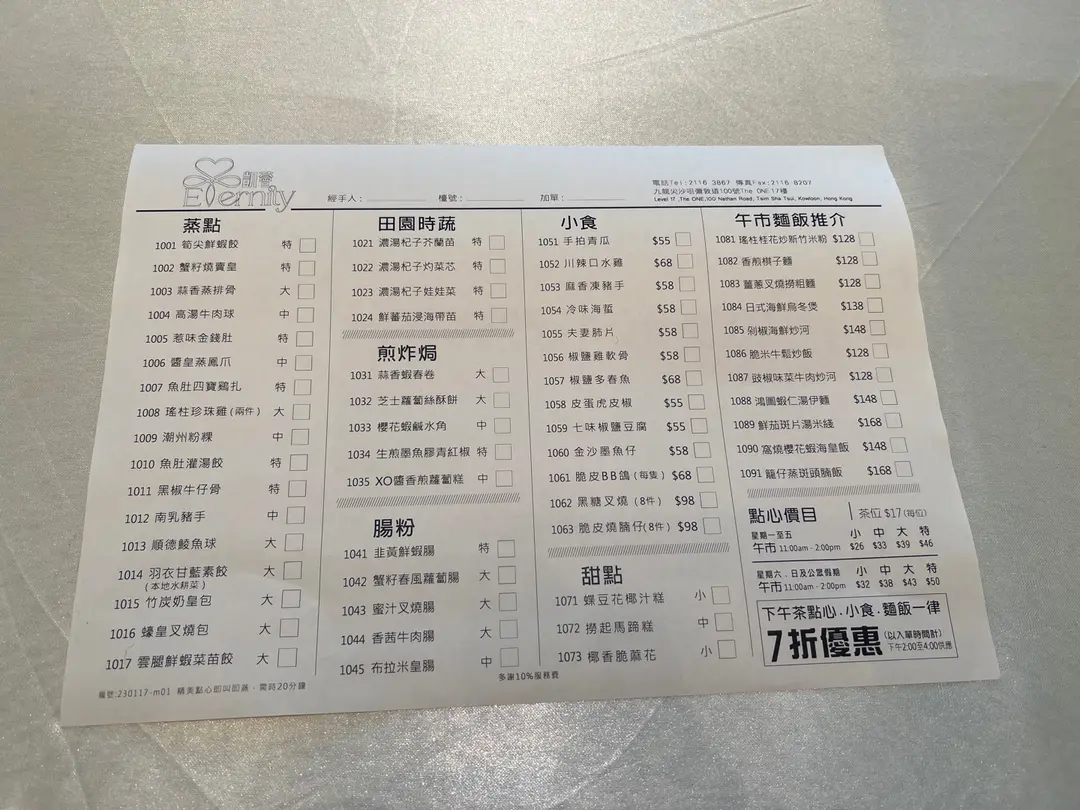 凱薈
Eternity
經手人：
檯號：
加單：
電話Tel:2116 3867 傳真Fax:2116 8207
九龍尖沙咀彌敦道100號The ONE 17樓
Level 17 ,The ONE,100 Nathan Road, Tsim Sha Tsui, Kowloon, Hong Kong
蒸點
1001 筍尖鮮蝦餃 特
1002 蟹籽燒賣皇 特
1003 蒜香蒸排骨 大
1004 高湯牛肉球 中
1005 惹味金錢肚 特
1006 醬皇蒸鳳爪 中
1007 魚肚四寶鷄扎 特
1008 瑤柱珍珠雞(兩件) 大
1009 潮州粉粿 中
1010 魚肚灌湯餃 特
1011 黑椒牛仔骨 特
1012 南乳豬手 中
1013 順德鯪魚球 大
1014 羽衣甘藍素餃 大
(本地水耕菜)
1015 竹炭奶皇包 大
1016 蠔皇叉燒包 大
1017 雲腿鮮蝦菜苗餃 大
田園時蔬
1021 濃湯杞子芥蘭苗 特
1022 濃湯杞子灼菜芯 特
1023 濃湯杞子娃娃菜 特
1024 鮮蕃茄浸海帶苗 特
煎炸焗
1031 蒜香蝦春卷 大
1032 芝士蘿蔔絲酥餅 大
1033 櫻花蝦鹹水角 中
1034 生煎墨魚膠青紅椒 特
1035 XO醬香煎蘿蔔糕 中
腸粉
1041 韭黃鮮蝦腸 特
1042 蟹籽春風蘿蔔腸 大
1043 蜜汁叉燒腸 大
1044 香茜牛肉腸 大
1045 布拉米皇腸 中
小食
1051 手拍青瓜 $55
1052 川辣口水雞 $68
1053 麻香凍豬手 $58
1054 冷味海蜇 $58
1055 夫妻肺片 $58
1056 椒鹽雞軟骨 $58
1057 椒鹽多春魚 $68
1058 皮蛋虎皮椒 $55
1059 七味椒鹽豆腐 $55
1060 金沙墨魚仔 $58
1061 脆皮BB鴿(每隻) $68
1062 黑糖叉燒(8件) $98
1063 脆皮燒腩仔(8件) $98
甜點
1071 蝶豆花椰汁糕 小
1072 撈起馬蹄糕 中
1073 椰香脆蔴花 小
午市麵飯推介
1081 瑤柱桂花炒新竹米粉 $128
1082 香煎棋子麵 $128
1083 薑蔥叉燒撈粗麵 $128
1084 日式海鮮烏冬煲 $138
1085 剁椒海鮮炒河 $148
1086 脆米牛鬆炒飯 $128
1087 豉椒味菜牛肉炒河 $128
1088 鴻圖蝦仁湯伊麵 $148
1089 鮮茄斑片湯米綫 $168
1090 窩燒櫻花蝦海皇飯 $148
1091 籠仔蒸斑頭腩飯 $168
點心價目 茶位 $17(每位)
星期一至五 小 中 大 特
午市 11:00am - 2:00pm $26 $33 $39 $46
星期六．日及公眾假期 小 中 大 特
午市 11:00am - 2:00pm $32 $38 $43 $50
下午茶點心．小食．麵飯一律
7折優惠 (以入單時間計)
下午2:00至4:00供應
編號:230117-m01 精美點心即叫即蒸，需時20分鐘
多謝10%服務費